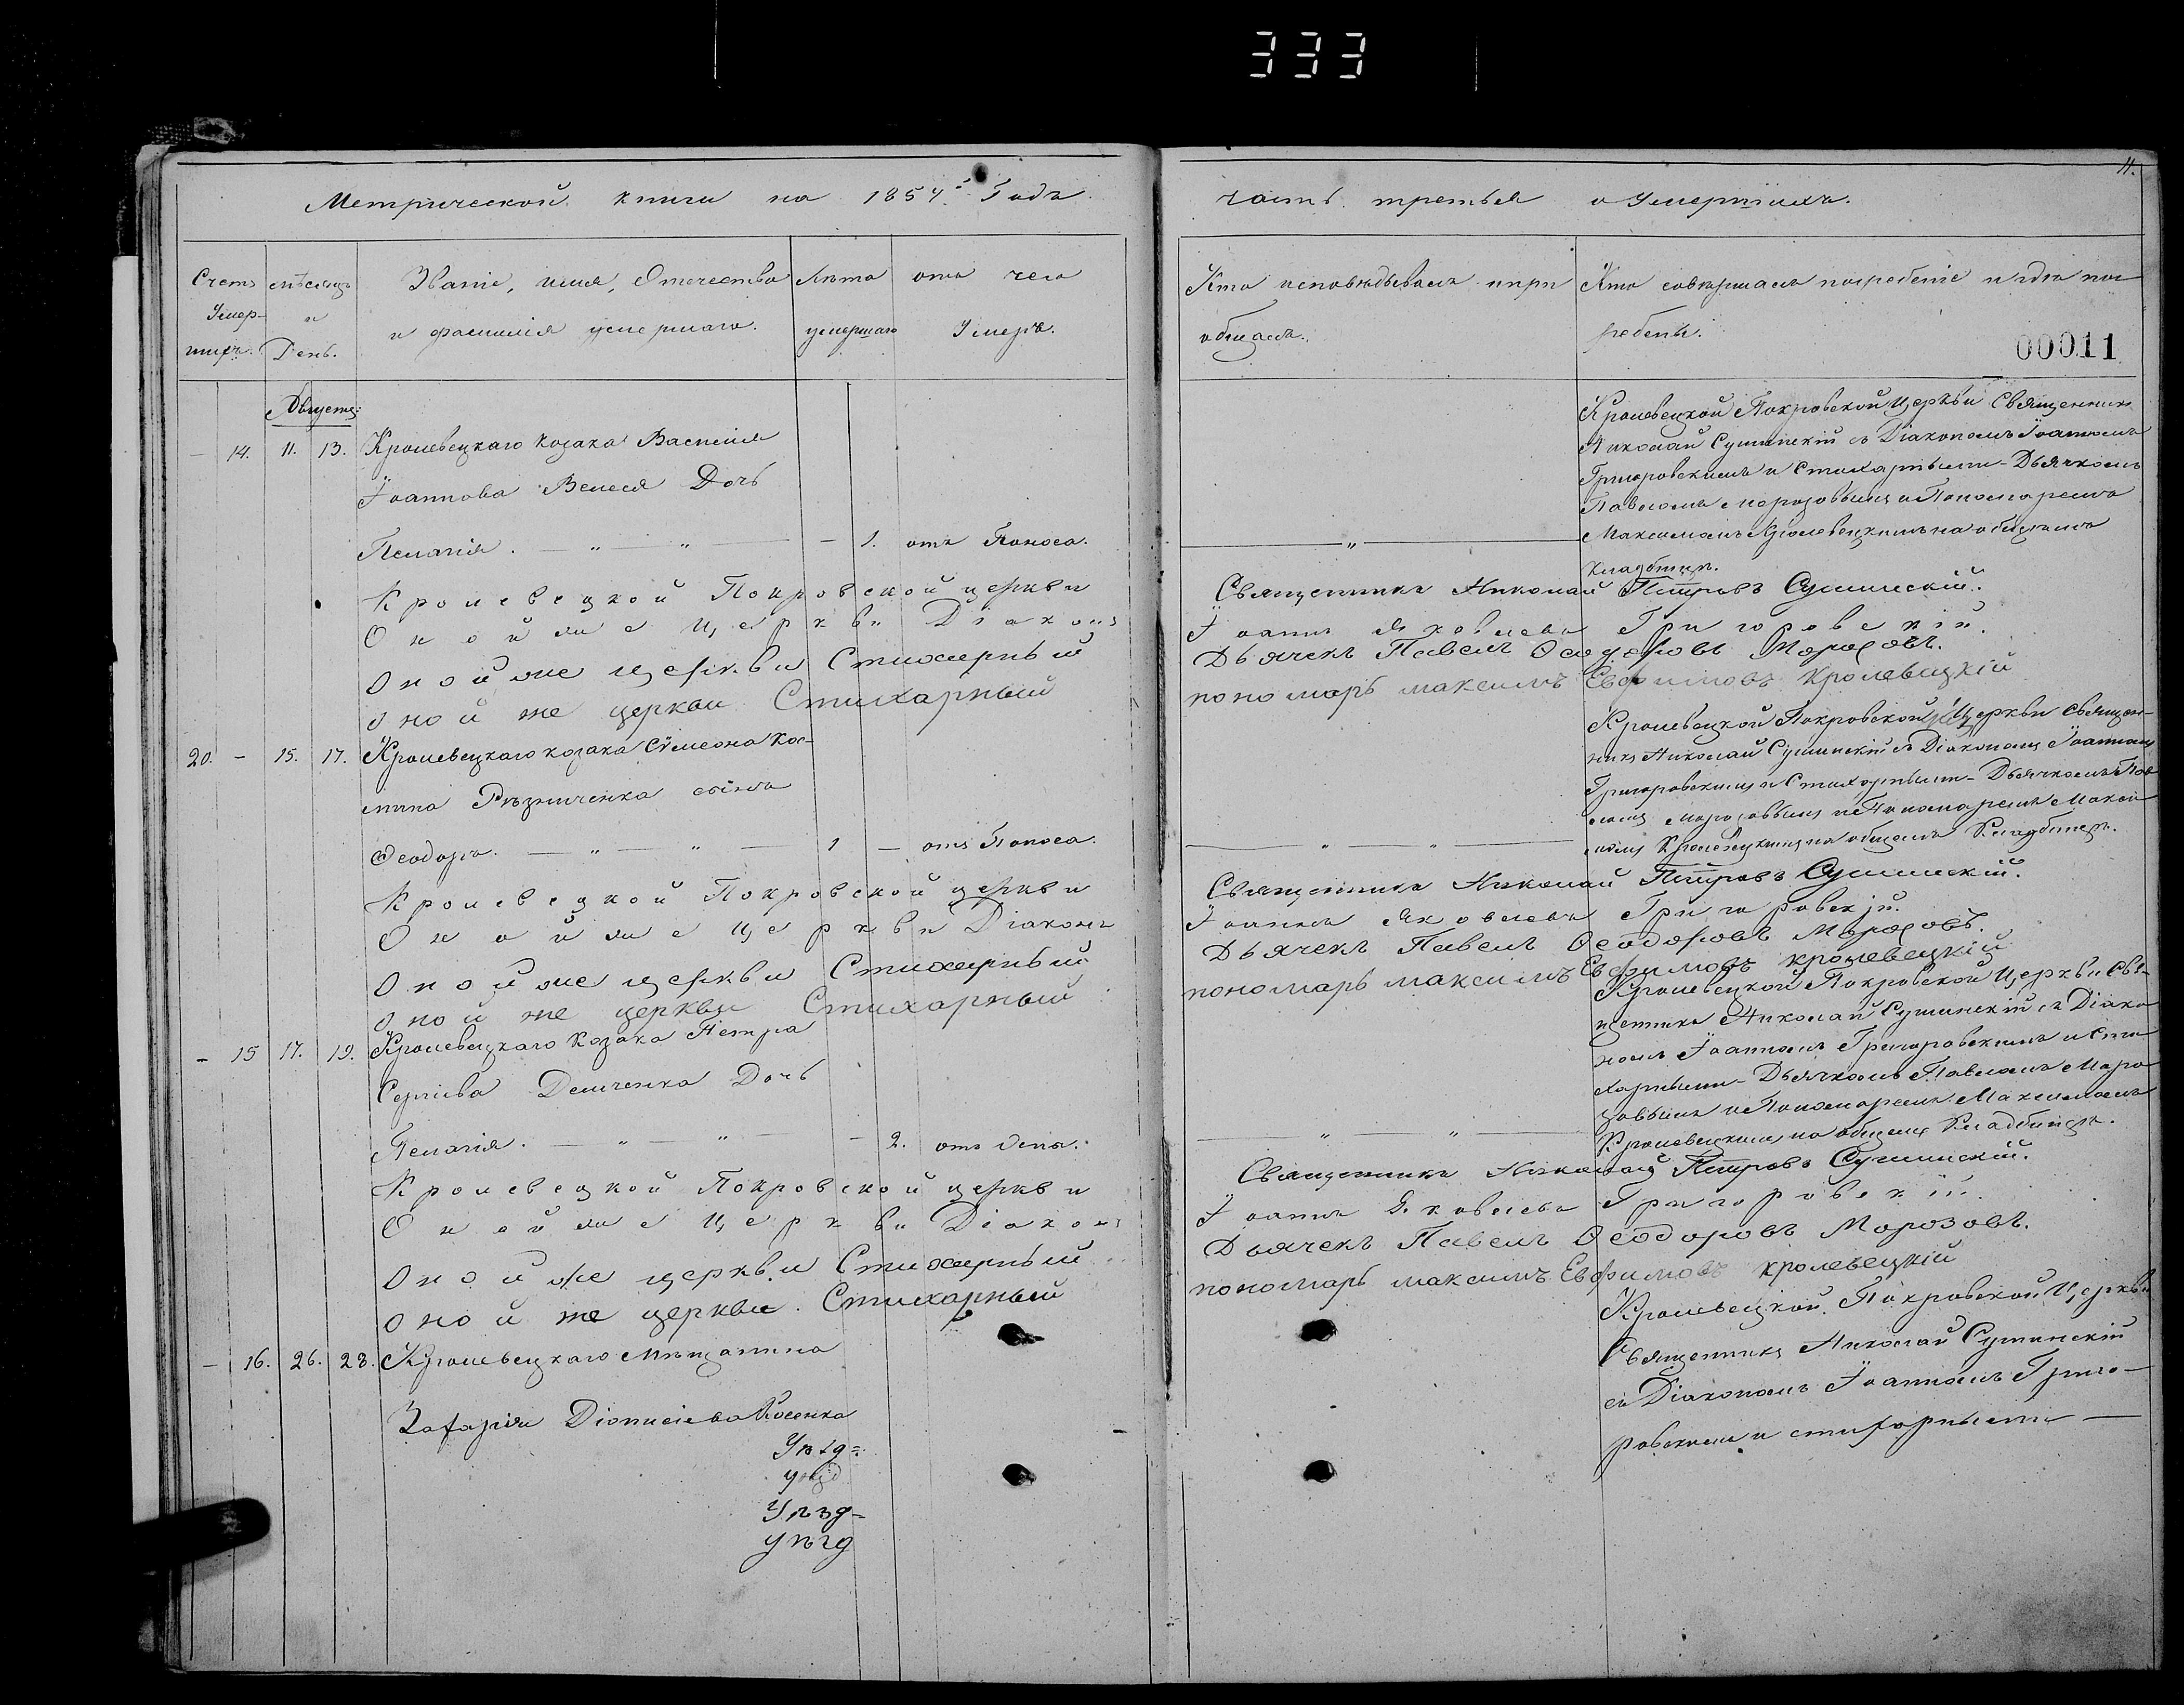 333
11.
Метрической книги на 1854й Годъ.
часть третья о Умершихъ.
Счетъ Умер-
шихъ.
мѣсяцъ
и
День.
Званіе, имя, Отчество
и фамилія умершаго.
Лѣта
умершаго
отъ чего
Умеръ.
Кто исповѣдывалъ и прі
общалъ.
Кто совершалъ погребеніе и гдѣ пог
ребены.
00011
Августъ:
14. 11. 13. Кролевецкаго козака Василія
Іоаннова Велеся Дочь
Пелагія. — 1. отъ Поноса.
Кролевецкой Покровской Церкви Священникъ
Николай Сушинскій съ Діакономъ Іоанномъ
Григоровскимъ и Стихарными - Дьячкомъ
Павломъ Морозовымъ и Пономаремъ
Максимомъ Кролевецкимъ на общемъ
Кладбищѣ.
Кролевецкой Покровской церкви Священникъ Николай Петровъ Сушинскій.
Оной же Церкви Діаконъ Іоаннъ Яковлевъ Григоровскій.
Оной же церкви Стихарный Дьячекъ Павелъ Ѳеодоровъ Морозовъ.
оной же церкви Стихарный пономарь максимъ Евфимовъ Кролевецкій
20. - 15. 17. Кролевецкаго козака Сѵмеона Кос-
мина Рѣзниченка сынъ
Ѳеодоръ. — 1 — отъ Поноса.
Кролевецкой Покровской Церкви Священ-
никъ Николай Сушинскій съ Діакономъ Іоанномъ
Григоровскимъ и Стихарными - Дьячкомъ Пав
ломъ Морозовымъ и Пономаремъ Макси
момъ Кролевецкимъ на общемъ Кладбищѣ.
Кролевецкой Покровской церкви Священникъ Николай Петровъ Сушинскій.
Оной же Церкви Діаконъ Іоаннъ Яковлевъ Григоровскій.
Оной же церкви Стихарный Дьячекъ Павелъ Ѳеодоровъ Морозовъ.
оной же церкви Стихарный пономарь максимъ Евфимовъ кролевецкій
- 15 17. 19. Кролевецкаго Козака Петра
Сергіева Демченка Дочь
Пелагія. — 2. отъ Оспы.
Кролевецкой Покровской Церкви Свя-
щенникъ Николай Сушинскій съ Діако
номъ Іоанномъ Григоровскимъ и Сти
харными - Дьячкомъ Павломъ Моро
зовымъ и Пономаремъ Максимомъ
Кролевецкимъ на общемъ Кладбищѣ.
Кролевецкой Покровской церкви Священникъ Николай Петровъ Сушинскій.
Оной же Церкви Діаконъ Іоаннъ Яковлевъ Григоровскій.
Оной же церкви Стихарный Дьячекъ Павелъ Ѳеодоровъ Морозовъ.
оной же церкви Стихарный пономарь максимъ Евфимовъ кролевецкій
- 16. 26. 28. Кролевецкаго Мѣщанина
Захарія Діонисіева Косенка
Кролевецкой Покровской Церкви
Священникъ Николай Сушинскій
съ Діакономъ Іоанномъ Григо-
ровскимъ и стихарными —
Уѣзд=
уѣзд
Уѣзд-
уѣзд